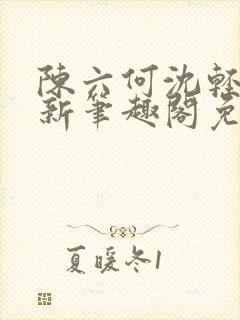 陳六何沈輕
新筆趣閣免
夏暖冬1